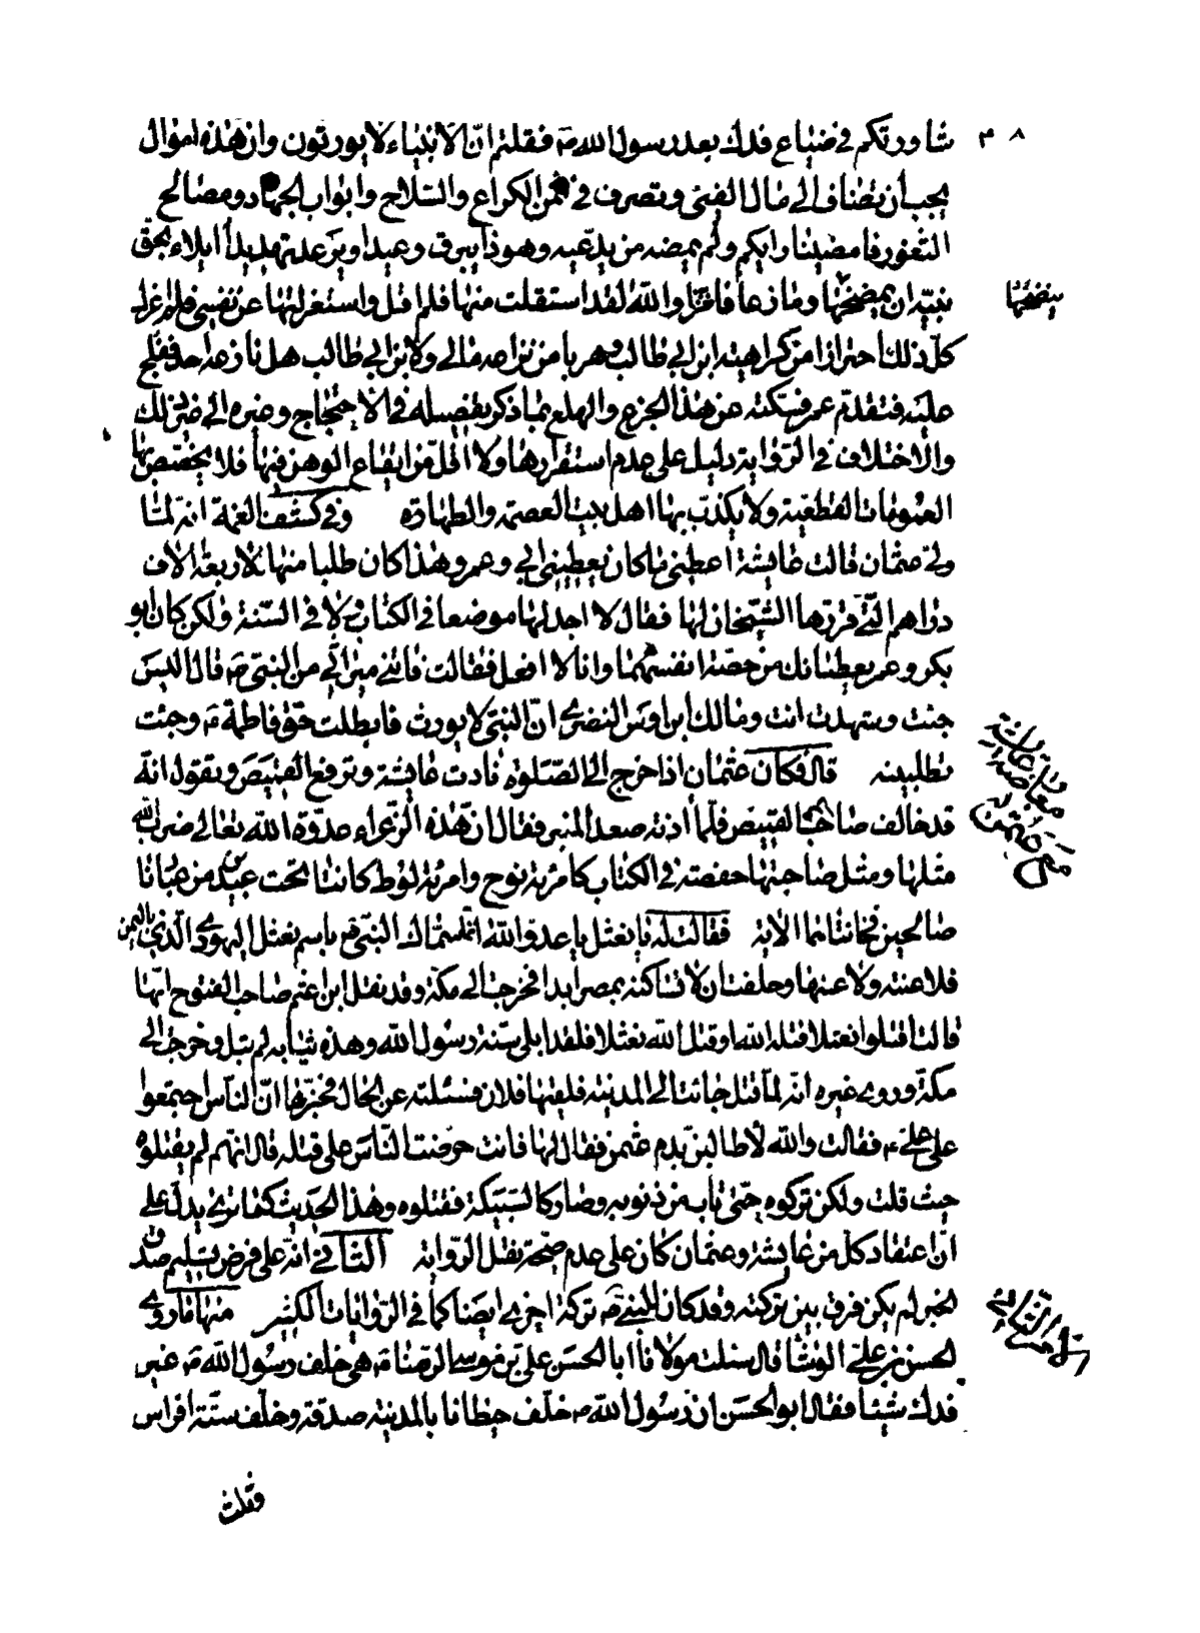 ٣٨
شاورتكم في ضياع فدك بعد رسول الله ص فقلتم انّ الانبياء لا يورثون وان هذه اموال
يجب أن تضاف الى مال الفئ وتصرف في ثمن الكراع والسّلاح وابواب الجهاد ومصالح
الثغور فامضينا رايكم ولم يمضه من يدّعيه وهو ذا يبرق وعيدا ويرعد تهديدا ايلاء بحق
نبيّه ان يمضخها وما زعافا والله لقد استقلت منها فلم اقل واستعزلتها عن نفسي فلم اعزل
كل ذلك احترازا من كراهية ابن ابي طالب وهربا من نزاعه مالي ولابن ابي طالب هل نازعه احد ففلج
عليه فتقدّم عمر فبكته عن هذا الجزع والهلع بما ذكر بتفصيله في الاحتجاج وغيره الى غير ذلك
والاختلاف في الرّواية دليل على عدم استقرارها ولا اقل من ايقاع الوهن فيها فلا يخصّص بها
العمومات القطعية ولا يكذب بها اهل بيت العصمة والطهارة وفي كشف الغمة انه لمّا
ولي عثمان قالت عايشة اعطني ما كان يعطيني ابي وعمر وهذا كان طلبا منها للاربعة الاف
دراهم الّتي قررها الشيخان لها فقال لا اجد لها موضعا في الكتاب ولا في السّنة ولكن كان ابو
بكر وعمر يعطيانك من حصة انفسهما وانا لا افعل فقالت فاتني ميراثي من النبي ص قال اليس
جئت وشهدت انت ومالك ابن اوس النضري انّ النبي لا يورث فابطلت حق فاطمة ع وجئت
تطلبينه قال فكان عثمان اذا خرج الى الصّلوة نادت عايشة وترفع القميص وتقول انه
قد خالف صاحب القميص فلما اذته صعد المنبر فقال ان هذه الزعراء عدوّة الله تعالى ضرب الله
مثلها ومثل صاحبتها حفصة في الكتاب كامرئة نوح وامرئة لوط كانتا تحت عبدين من عبادنا
صالحين فخانتاهما الاية فقالت له يا نعثل يا عدو الله انما سماك النبي ص باسم نعثل اليهودي الذي باليمن
فلاعنته ولاعنها وحلفت ان لا تساكنه بمصر ابدا فخرجت الى مكة وقد نقل ابن اعثم صاحب الفتوح انها
قالت اقتلوا نعثلا قتله الله او قتل الله نعثلا فلقد ابلى سنة رسول الله وهذه ثيابه لم تبل وخرجت الى
مكة وروى غيره انه لمّا قتل جائت الى المدينة فلقيها فلان فسئلته عن الحال فخبرها انّ الناس اجتمعوا
على علي ع فقالت والله لاطالبن بدم عثمن فقال لها فانت حرّضت النّاس على قتله قال انهم لم يقتلوه
حيث قلت ولكن تركوه حتى تاب من ذنوبه وصار كالسّبيكة فقتلوه وهذا الحديث كما ترى يدلّ على
انّ اعتقاد كل من عايشة وعثمان كان على عدم صحة نقل الرواية الثاني انه على فرض تسليم صدق
الخبر لم يكن فرق بين تركته وقد كان للنبي ص تركة اخرى ايضا كما في الروايات الكثير منها ما روى
لحسن بن علي الوشا قال سئلت مولانا ابا الحسن علي بن موسى الرضا ع هل خلف رسول الله ص غير
فدك شيئا فقال ابو الحسن ان رسول الله ص خلف حيطانا بالمدينة صدقة وخلف ستة افراس
مع عثمن
وقلت